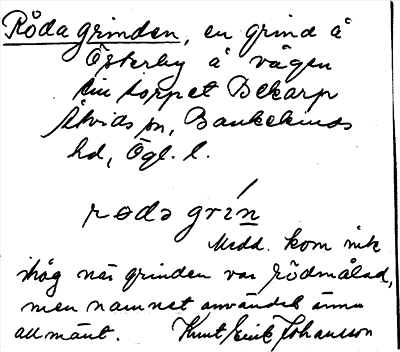 Röda grinden, en grind å
Österby å vägen
till torpet Bekarp
Åtvids sn, Bankekinds
hd, Ögl. l.
rødə grín
Medd. kom inte
ihåg när grinden var rödmålad,
men namnet användes ännu
allmänt. Knut Erik Johansson